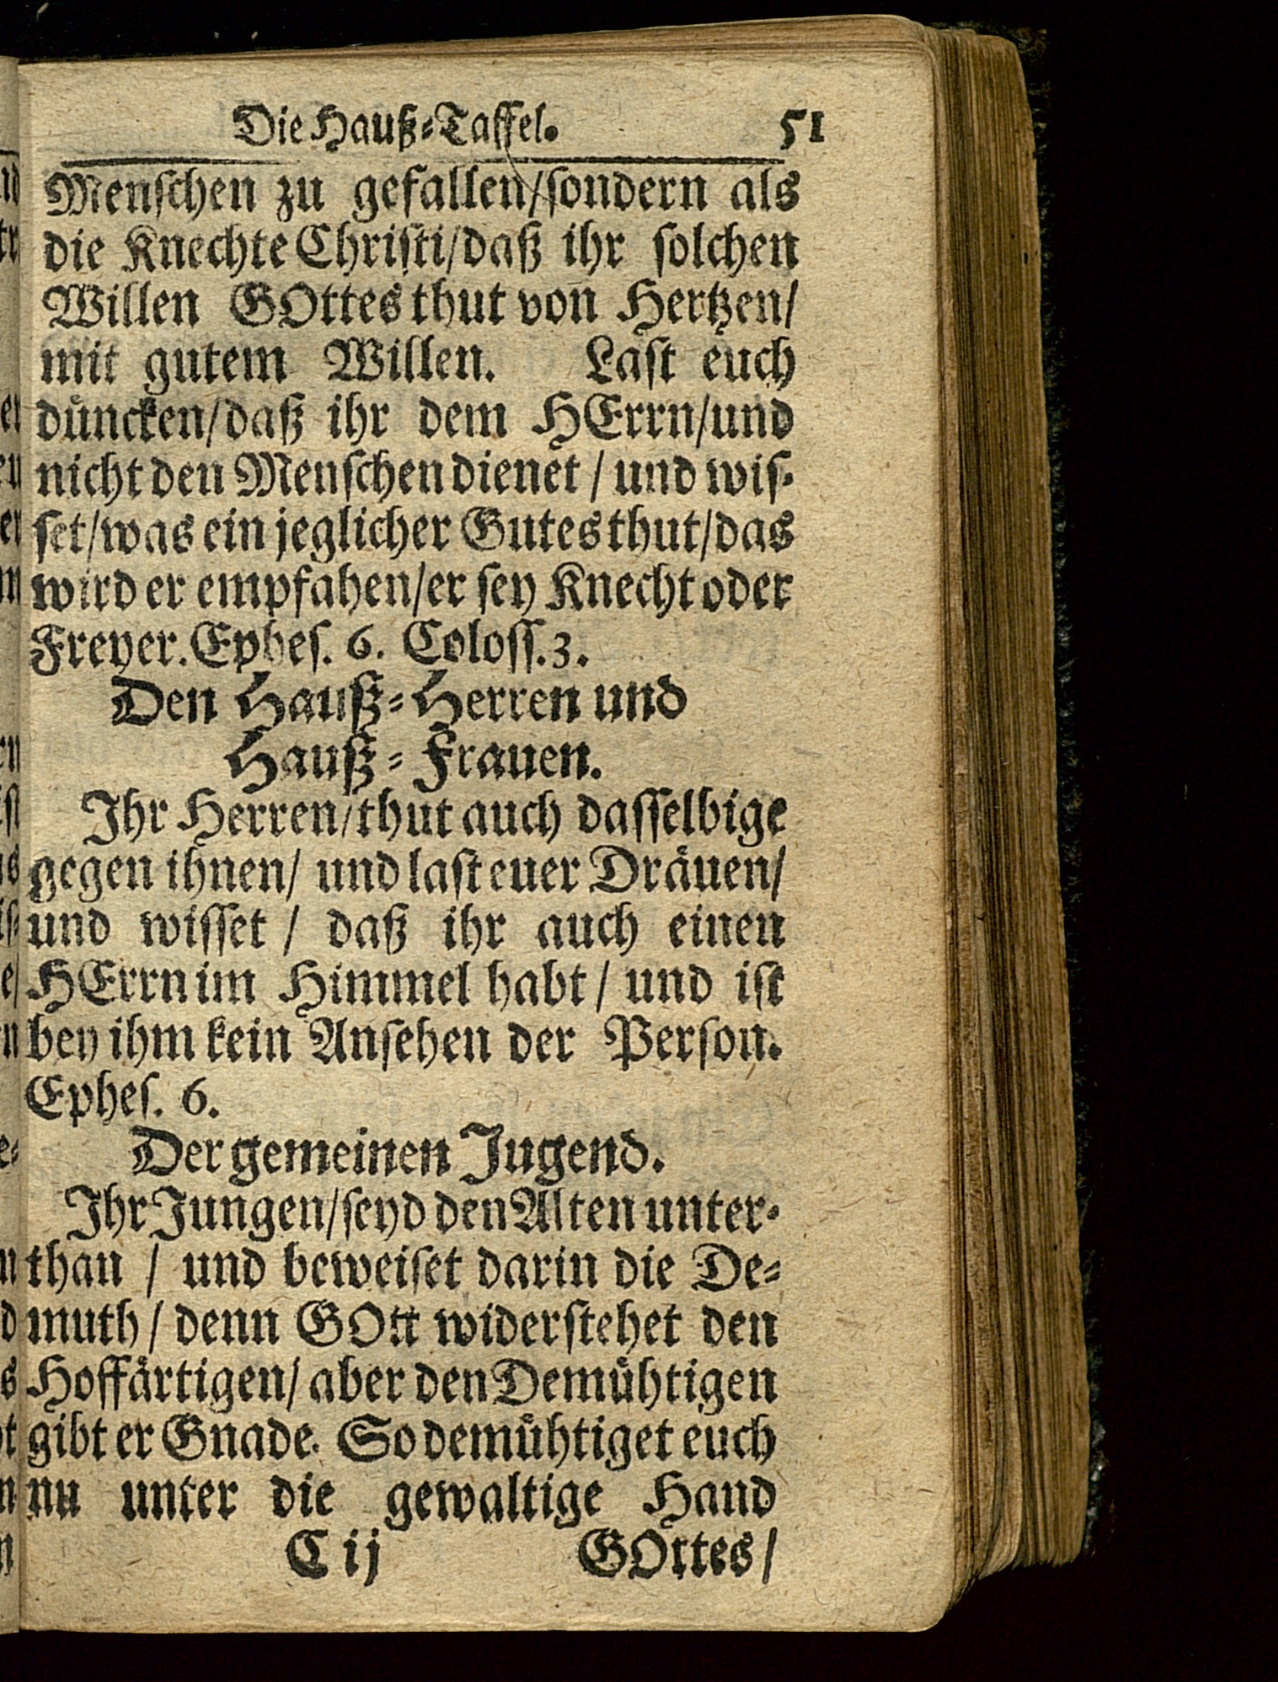 Die Hauß-Taffel. 51
Menschen zu gefallen/sondern als
die Knechte Christi/daß ihr solchen
Willen GOttes thut von Hertzen/
mit gutem Willen. Last euch
düncken/daß ihr dem HErrn/und
nicht den Menschen dienet / und wis-
set/was ein jeglicher Gutes thut/das
wird er empfahen/er sey Knecht oder
Freyer. Ephes. 6. Coloss. 3.
Den Hauß-Herren und
Hauß-Frauen.
Ihr Herren/thut auch dasselbige
gegen ihnen/ und last euer Dräuen/
und wisset / daß ihr auch einen
HErrn im Himmel habt / und ist
bey ihm kein Ansehen der Person.
Ephes. 6.
Der gemeinen Jugend.
Ihr Jungen/seyd den Alten unter-
than / und beweiset darin die De-
muth / denn GOtt widerstehet den
Hoffärtigen/ aber den Demühtigen
gibt er Gnade. So demühtiget euch
nu unter die gewaltige Hand
C ij GOttes/